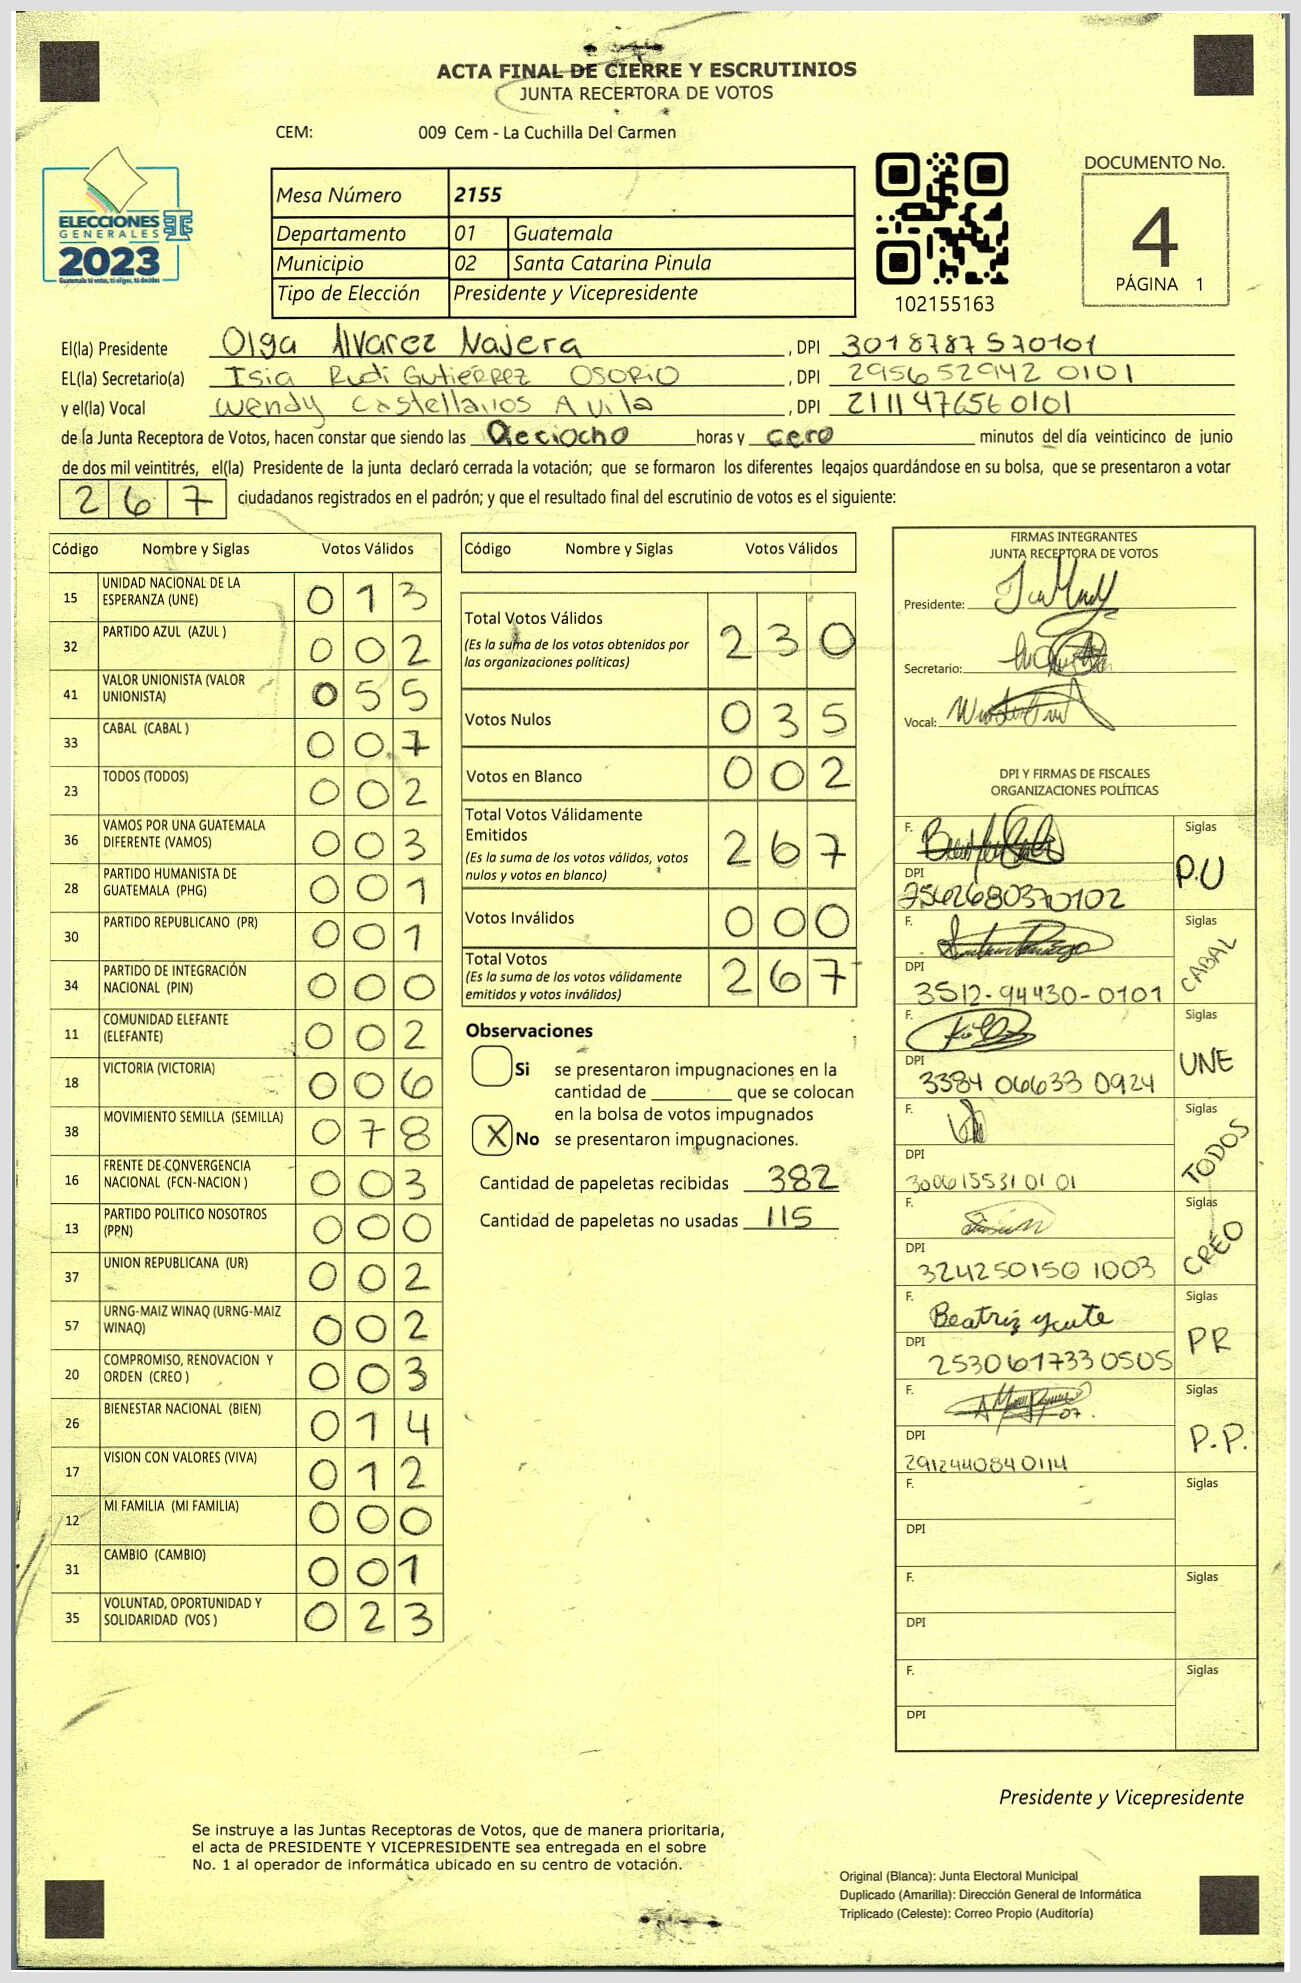 ACTA FINAL DE CIERRE Y ESCRUTINIOS
JUNTA RECEPTORA DE VOTOS
CEM: 009 Cem - La Cuchilla Del Carmen
ELECCIONES
GENERALES
2023
Guatemala tú votas, tú eliges, tú decides
Mesa Número 2155
Departamento 01 Guatemala
Municipio 02 Santa Catarina Pinula
Tipo de Elección Presidente y Vicepresidente
102155163
DOCUMENTO No.
4
PÁGINA 1
El(la) Presidente Olga Alvarez Najera , DPI 3018787570101
EL(la) Secretario(a) Isia Rudi Gutierrez OSORIO , DPI 2956529420101
y el(la) Vocal Wendy Castellanos Avila , DPI 2111476560101
de la Junta Receptora de Votos, hacen constar que siendo las Dieciocho horas y cero minutos del día veinticinco de junio
de dos mil veintitrés, el(la) Presidente de la junta declaró cerrada la votación; que se formaron los diferentes legajos guardándose en su bolsa, que se presentaron a votar
267 ciudadanos registrados en el padrón; y que el resultado final del escrutinio de votos es el siguiente:
Código Nombre y Siglas Votos Válidos
15 UNIDAD NACIONAL DE LA ESPERANZA (UNE) 013
32 PARTIDO AZUL (AZUL ) 002
41 VALOR UNIONISTA (VALOR UNIONISTA) 055
33 CABAL (CABAL ) 007
23 TODOS (TODOS) 002
36 VAMOS POR UNA GUATEMALA DIFERENTE (VAMOS) 003
28 PARTIDO HUMANISTA DE GUATEMALA (PHG) 001
30 PARTIDO REPUBLICANO (PR) 001
34 PARTIDO DE INTEGRACIÓN NACIONAL (PIN) 000
11 COMUNIDAD ELEFANTE (ELEFANTE) 002
18 VICTORIA (VICTORIA) 006
38 MOVIMIENTO SEMILLA (SEMILLA) 078
16 FRENTE DE CONVERGENCIA NACIONAL (FCN-NACION ) 003
13 PARTIDO POLITICO NOSOTROS (PPN) 000
37 UNION REPUBLICANA (UR) 002
57 URNG-MAIZ WINAQ (URNG-MAIZ WINAQ) 002
20 COMPROMISO, RENOVACION Y ORDEN (CREO ) 003
26 BIENESTAR NACIONAL (BIEN) 014
17 VISION CON VALORES (VIVA) 012
12 MI FAMILIA (MI FAMILIA) 000
31 CAMBIO (CAMBIO) 001
35 VOLUNTAD, OPORTUNIDAD Y SOLIDARIDAD (VOS ) 023
Código Nombre y Siglas Votos Válidos
Total Votos Válidos 230
(Es la suma de los votos obtenidos por
las organizaciones politicas)
Votos Nulos 035
Votos en Blanco 002
Total Votos Válidamente
Emitidos 267
(Es la suma de los votos válidos, votos
nulos y votos en blanco)
Votos Inválidos 000
Total Votos 267
(Es la suma de los votos válidamente
emitidos y votos inválidos)
Observaciones
Si se presentaron impugnaciones en la
cantidad de ________ que se colocan
en la bolsa de votos impugnados
X No se presentaron impugnaciones.
Cantidad de papeletas recibidas 382
Cantidad de papeletas no usadas 115
FIRMAS INTEGRANTES
JUNTA RECEPTORA DE VOTOS
Presidente:
Secretario:
Vocal:
DPI Y FIRMAS DE FISCALES
ORGANIZACIONES POLÍTICAS
F. Siglas P.U
DPI 2562680370102
F. Siglas CABAL
DPI 3512-94430-0101
F. Siglas UNE
DPI 3384 06633 0924
F. Siglas TODOS
DPI 3006155310101
F. Siglas CREO
DPI 324250150 1003
F. Beatriz Siglas PR
DPI 2530617330505
F. Siglas P.P.
DPI 2912440840114
F. Siglas
DPI
F. Siglas
DPI
F. Siglas
DPI
Presidente y Vicepresidente
Se instruye a las Juntas Receptoras de Votos, que de manera prioritaria,
el acta de PRESIDENTE Y VICEPRESIDENTE sea entregada en el sobre
No. 1 al operador de informática ubicado en su centro de votación.
Original (Blanca): Junta Electoral Municipal
Duplicado (Amarilla): Dirección General de Informática
Triplicado (Celeste): Correo Propio (Auditoría)